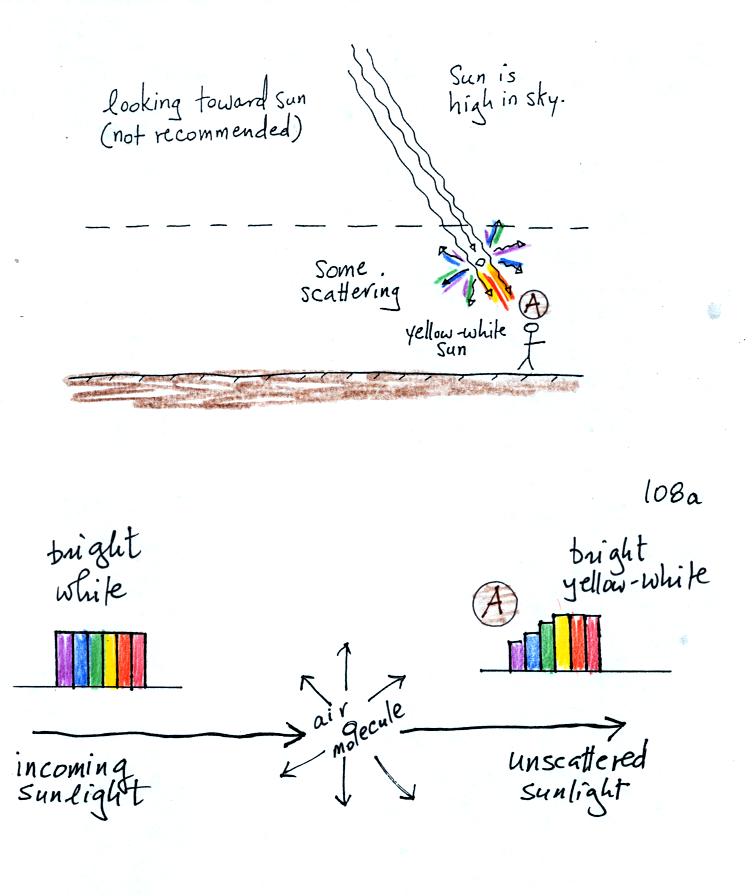 looking toward sun
(not recommended)
Sun is
high in sky.
Some
scattering
A
yellow-white
Sun
108a
bright
white
A
bright
yellow-white
air
molecule
incoming
sunlight
unscattered
sunlight